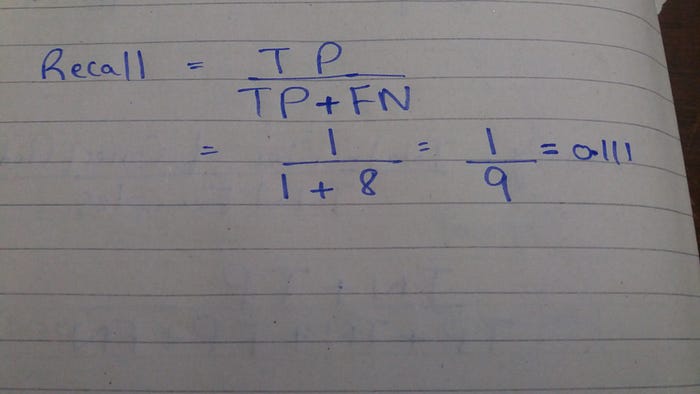 Recall = TP / TP+FN
= 1 / 1 + 8 = 1 / 9 = 0.111